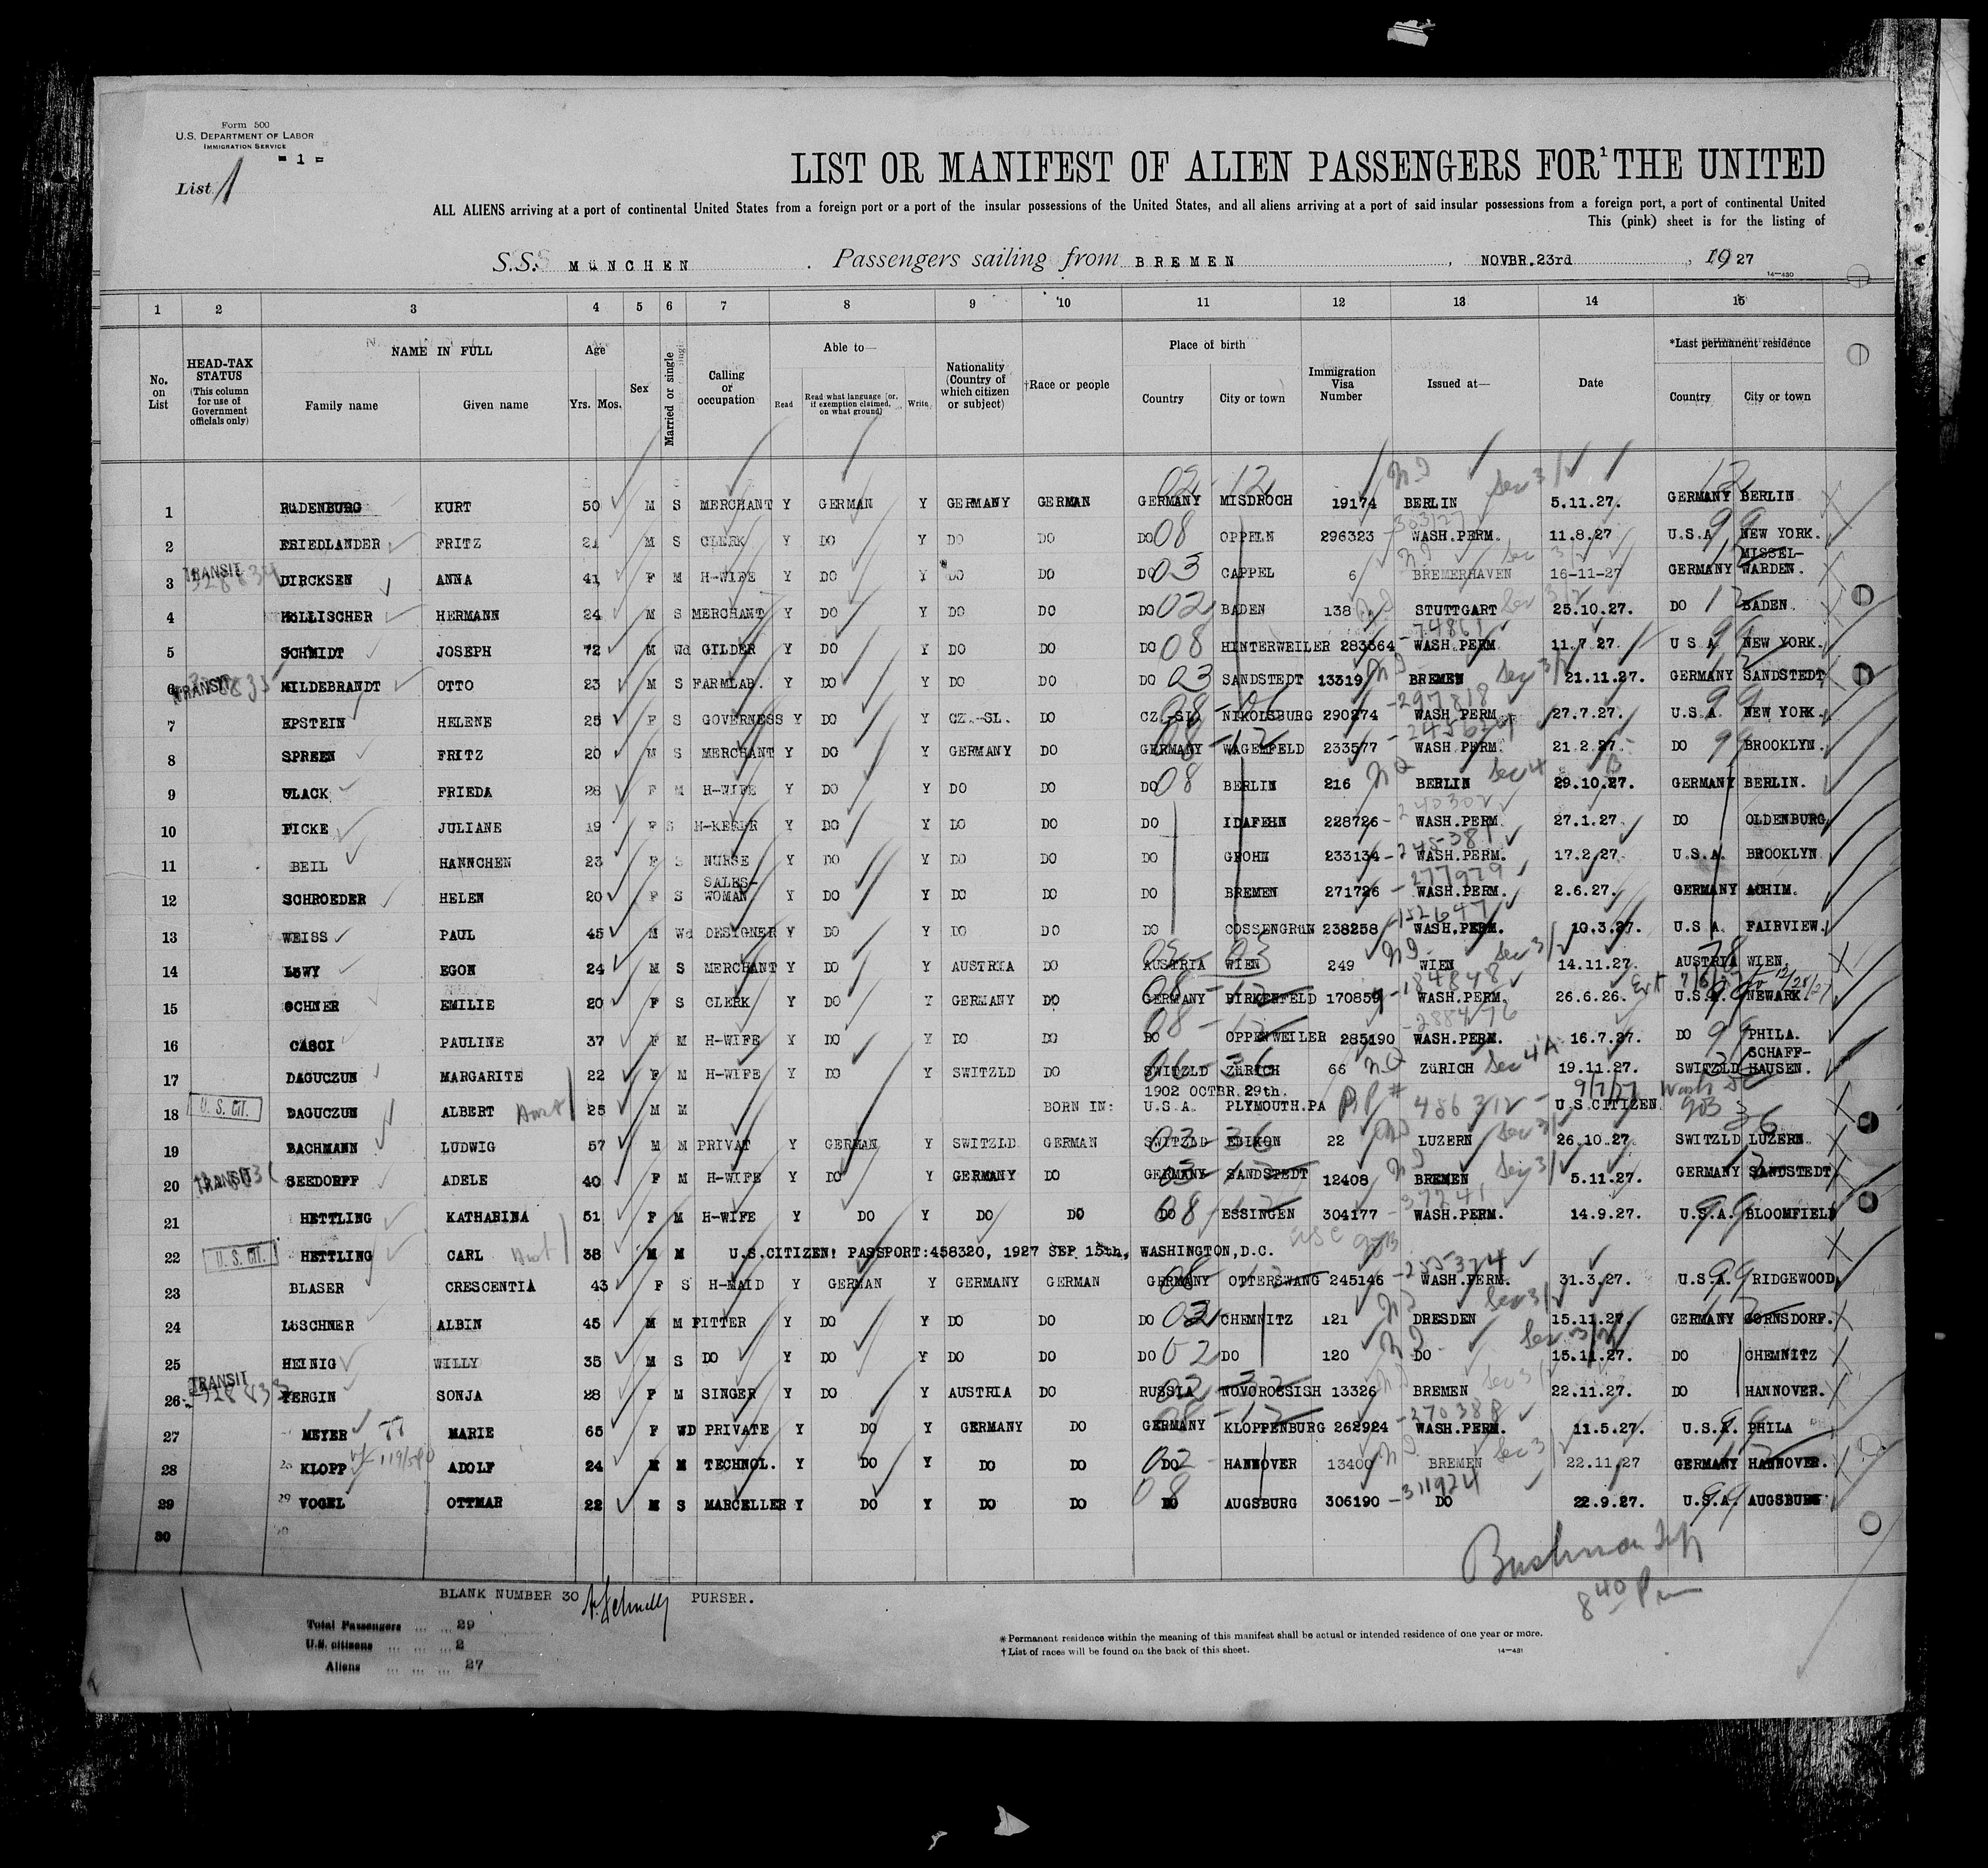 Form 500
U.S. DEPARTMENT OF LABOR
IMMIGRATION SERVICE
= 1 =
List 1
LIST OR MANIFEST OF ALIEN PASSENGERS FOR THE UNITED
ALL ALIENS arriving at a port of continental United States from a foreign port or a port of the insular possessions of the United States, and all aliens arriving at a port of said insular possessions from a foreign port, a port of continental United
This (pink) sheet is for the listing of
S.S. MüNCHEN . Passengers sailing from BREMEN , NOVBR.23rd , 1927
14—430
1 2 3 4 5 6 7 8 9 10 11 12 13 14 15
No. on List HEAD-TAX STATUS (This column for use of Government officials only) NAME IN FULL Family name Given name Age Yrs. Mos. Sex Married or single Calling or occupation Able to— Read Read what language (or, if exemption claimed, on what ground) Write Nationality (Country of which citizen or subject) †Race or people Place of birth Country City or town Immigration Visa Number Issued at— Date *Last permanent residence Country City or town
02 - 12 Sec 3/2 12
1 RüDENBURG KURT 50 M S MERCHANT Y GERMAN Y GERMANY GERMAN GERMANY MISDROCH 19174 BERLIN 5.11.27. GERMANY BERLIN
2 FRIEDLANDER FRITZ 21 M S CLERK Y DO Y DO DO DO 08 OPPELN 296323 WASH.PERM. 11.8.27 U.S.A 99 NEW YORK.
3 TRANSIT DIRCKSEN ANNA 41 F M H-WIFE Y DO Y DO DO DO 03 CAPPEL 6 BREMERHAVEN 16-11-27 GERMANY MISSEL-WARDEN.
4 HöLLISCHER HERMANN 24 M S MERCHANT Y DO Y DO DO DO 02 BADEN 138 STUTTGART Sec 3/2 25.10.27. DO 12 BADEN
5 SCHMIDT JOSEPH 72 M Wd GILDER Y DO Y DO DO DO 08 HINTERWEILER 283364 - 74861 WASH.PERM 11.7.27. U S A 99 NEW YORK.
6 TRANSIT HILDEBRANDT OTTO 23 M S FARMLAB. Y DO Y DO DO DO 03 SANDSTEDT 13319 BREMEN Sec 3/2 21.11.27. GERMANY SANDSTEDT
7 EPSTEIN HELENE 25 F S GOVERNESS Y DO Y CZ.-SL. DO CZ.-SL. NIKOLSBURG 290274 - 297818 WASH PERM. 27.7.27. U.S.A. 99 NEW YORK.
8 SPREEN FRITZ 20 M S MERCHANT Y DO Y GERMANY DO GERMANY 08 - 12 WAGENFELD 233577 WASH.PERM. 21.2.27. DO 99 BROOKLYN.
9 ULACK FRIEDA 28 F M H-WIFE Y DO Y DO DO DO 08 BERLIN 216 NQ BERLIN Sec 4 29.10.27. GERMANY BERLIN.
10 FICKE JULIANE 19 F S H-KEEPR Y DO Y DO DO DO IDAFEHN 228726 WASH.PERM. 27.1.27. DO OLDENBURG
11 BEIL HANNCHEN 23 F S NURSE Y DO Y DO DO DO GROHN 233134 - 245381 WASH.PERM. 17.2.27. U.S.A. BROOKLYN
12 SCHROEDER HELEN 20 F S SALES-WOMAN Y DO Y DO DO DO BREMEN 271726 - 277979 WASH.PERM. 2.6.27. GERMANY ACHIM.
13 WEISS PAUL 45 M Wd DESIGNER Y DO Y DO DO DO COSSENGRüN 238258 - 152647 WASH.PERM. 10.3.27. U.S.A. FAIRVIEW.
14 LöWY EGON 24 M S MERCHANT Y DO Y AUSTRIA DO AUSTRIA WIEN 249 WIEN Sec 3/2 14.11.27. AUSTRIA WIEN.
15 OCHNER EMILIE 20 F S CLERK Y DO Y GERMANY DO GERMANY BIRKENFELD 170859 - 184848 WASH.PERM. 26.6.26. U.S.A. NEWARK.
16 CASCI PAULINE 37 F M H-WIFE Y DO Y DO DO DO OPPENWEILER 285190 - 288476 WASH.PERM. 16.7.27. DO 99 PHILA.
17 DAGUCZUN MARGARITE 22 F M H-WIFE Y DO Y SWITZLD DO SWITZLD ZüRICH 66 NQ ZüRICH Sec 4A 19.11.27. SWITZLD SCHAFF-HAUSEN.
18 U.S. CIT. DAGUCZUN ALBERT 25 M M BORN IN: 1902 OCTBR.29th. U.S.A. PLYMOUTH.PA PP# 486312 - 9/7/27 U.S CITIZEN Wash DC
19 BACHMANN LUDWIG 57 M M PRIVAT Y GERMAN Y SWITZLD GERMAN SWITZLD EDIKON 22 LUZERN Sec 3/2 26.10.27. SWITZLD 36 LUZERN
20 TRANSIT SEEDORFF ADELE 40 F M H-WIFE Y DO Y GERMANY DO GERMANY SANDSTEDT 12408 BREMEN 5.11.27. GERMANY SANDSTEDT
21 HETTLING KATHARINA 51 F M H-WIFE Y DO Y DO DO DO 08 - 12 ESSINGEN 304177 - 37741 WASH.PERM. 14.9.27. U.S.A. 99 BLOOMFIELD
22 U.S. CIT. HETTLING CARL 38 M M U.S.CITIZEN! PASSPORT:458320, 1927 SEP 15th, WASHINGTON,D.C. USC
23 BLASER CRESCENTIA 43 F S H-MAID Y GERMAN Y GERMANY GERMAN GERMANY OTTERSWANG 245146 - 255374 WASH.PERM. 31.3.27. U.S.A. 99 RIDGEWOOD
24 LöSCHNER ALBIN 45 M M FITTER Y DO Y DO DO DO 02 CHEMNITZ 121 DRESDEN Sec 3/2 15.11.27. GERMANY GORNSDORF.
25 HEINIG WILLY 35 M S DO Y DO Y DO DO DO 02 DO 120 DO Sec 3/2 15.11.27. DO CHEMNITZ
26 TRANSIT FERGIN SONJA 28 F M SINGER Y DO Y AUSTRIA DO RUSSIA NOVOROSSISH 13326 BREMEN 22.11.27. DO HANNOVER.
27 MEYER MARIE 65 F WD PRIVATE Y DO Y GERMANY DO GERMANY KLOPPENBURG 262924 - 270388 WASH.PERM. 11.5.27. U.S.A. 99 PHILA
28 KLOPP ADOLF 24 M M TECHNOL. Y DO Y DO DO DO 02 HANNOVER 13400 BREMEN 22.11.27 GERMANY HANNOVER.
29 VOGEL OTTMAR 22 M S MARCELLER Y DO Y DO DO DO 08 AUGSBURG 306190 - 311924 DO 22.9.27. U.S.A. 99 AUGSBURG
30
8 40 Pm
BLANK NUMBER 30 PURSER.
Total Passengers ... ... 29
U.S. citizens ... ... ... 2
Aliens ... ... ... 27
* Permanent residence within the meaning of this manifest shall be actual or intended residence of one year or more.
† List of races will be found on the back of this sheet.
14—431